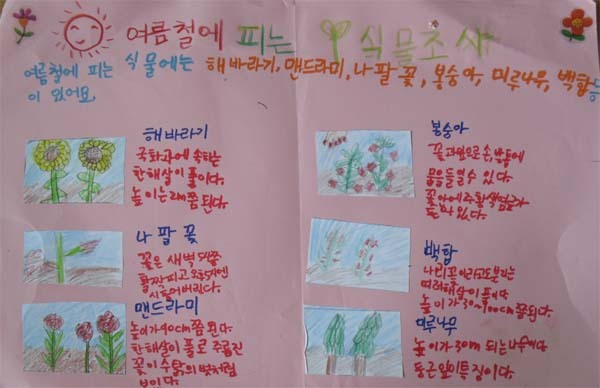 여름철에 피는 식물조사
여름철에 피는 식물에는 해바라기, 맨드라미, 나팔꽃, 봉숭아, 미루나무, 백합등
이 있어요.
해바라기
국화과에 속하는
한해살이 풀이다.
높이는 2m쯤 된다.
나팔꽃
꽃은 새벽 5시쯤
활짝피고
시들어버린다.
맨드라미
높이가 90cm쯤 된다
한해살이 풀로 주름진
꽃이 수탉의 볏처럼
보이다.
봉숭아
꽃과잎으로 손톱에
물을들일수 있다.
꽃안에 주황색
들어 있다.
백합
나리꽃이라고도불리는
여러해살이풀이다
높이가 30~100cm쯤된다.
미루나무
높이가 30m 되는나무이다
둥근잎이특징이다.